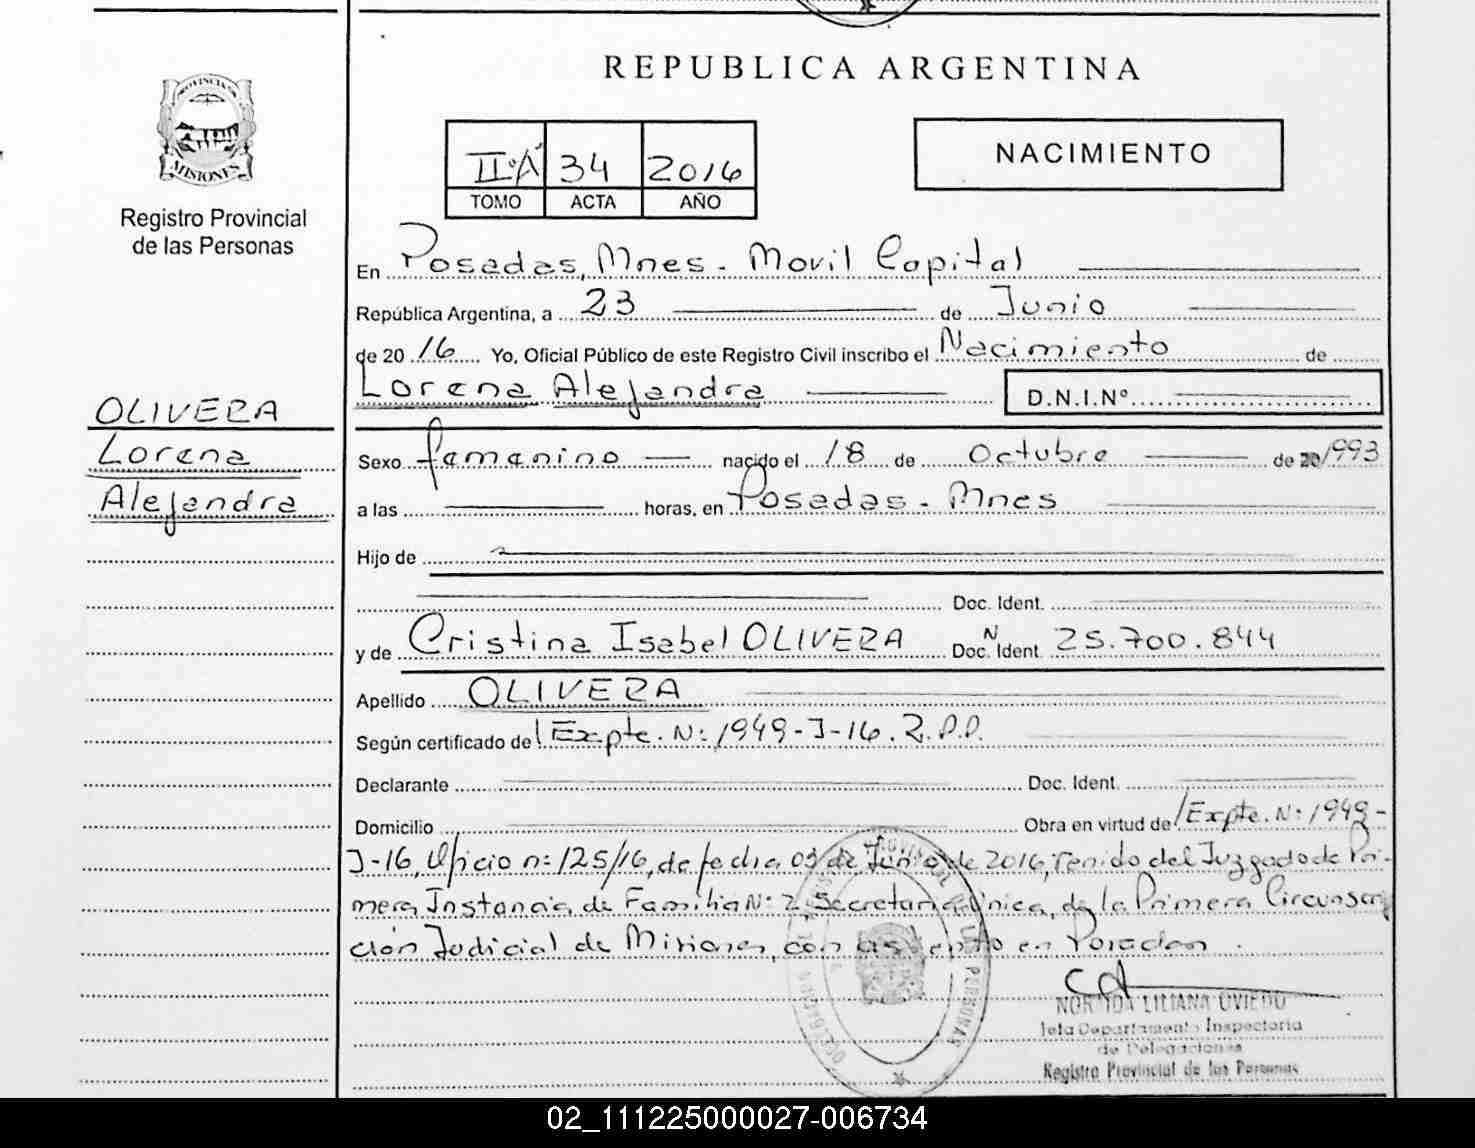 REPUBLICA ARGENTINA
PROVINCIA DE
MISIONES
Registro Provincial
de las Personas
II·"A" 34 2016
TOMO ACTA AÑO
NACIMIENTO
En Posadas, Mnes - Movil Capital
República Argentina, a 23 de Junio
de 2016 Yo, Oficial Público de este Registro Civil inscribo el Nacimiento de
Lorena Alejandra D.N.I.Nº
OLIVERA
Lorena
Alejandra
Sexo femenino nacido el 18 de Octubre de 20 1993
a las horas, en Posadas - Mnes
Hijo de
Doc. Ident.
y de Cristina Isabel OLIVERA Doc. N Ident. 25.700.844
Apellido OLIVERA
Según certificado del Expte. N: 1949-J-16. R.P.P.
Declarante Doc. Ident.
Domicilio Obra en virtud del Expte. N: 1949-
J-16, Oficio n: 125/16, de fecha 03 de Junio de 2016, venido del Juzgado de Pri-
mera Instancia de Familia N: 2 Secretaria Unica, de la Primera Circunscrip
ción Judicial de Misiones, con asiento en Posadas.
NORMIDA LILIANA OVIEDO
Jefa Departamento Inspectoria
de Delegaciones
Registro Provincial de las Personas
02_111225000027-006734